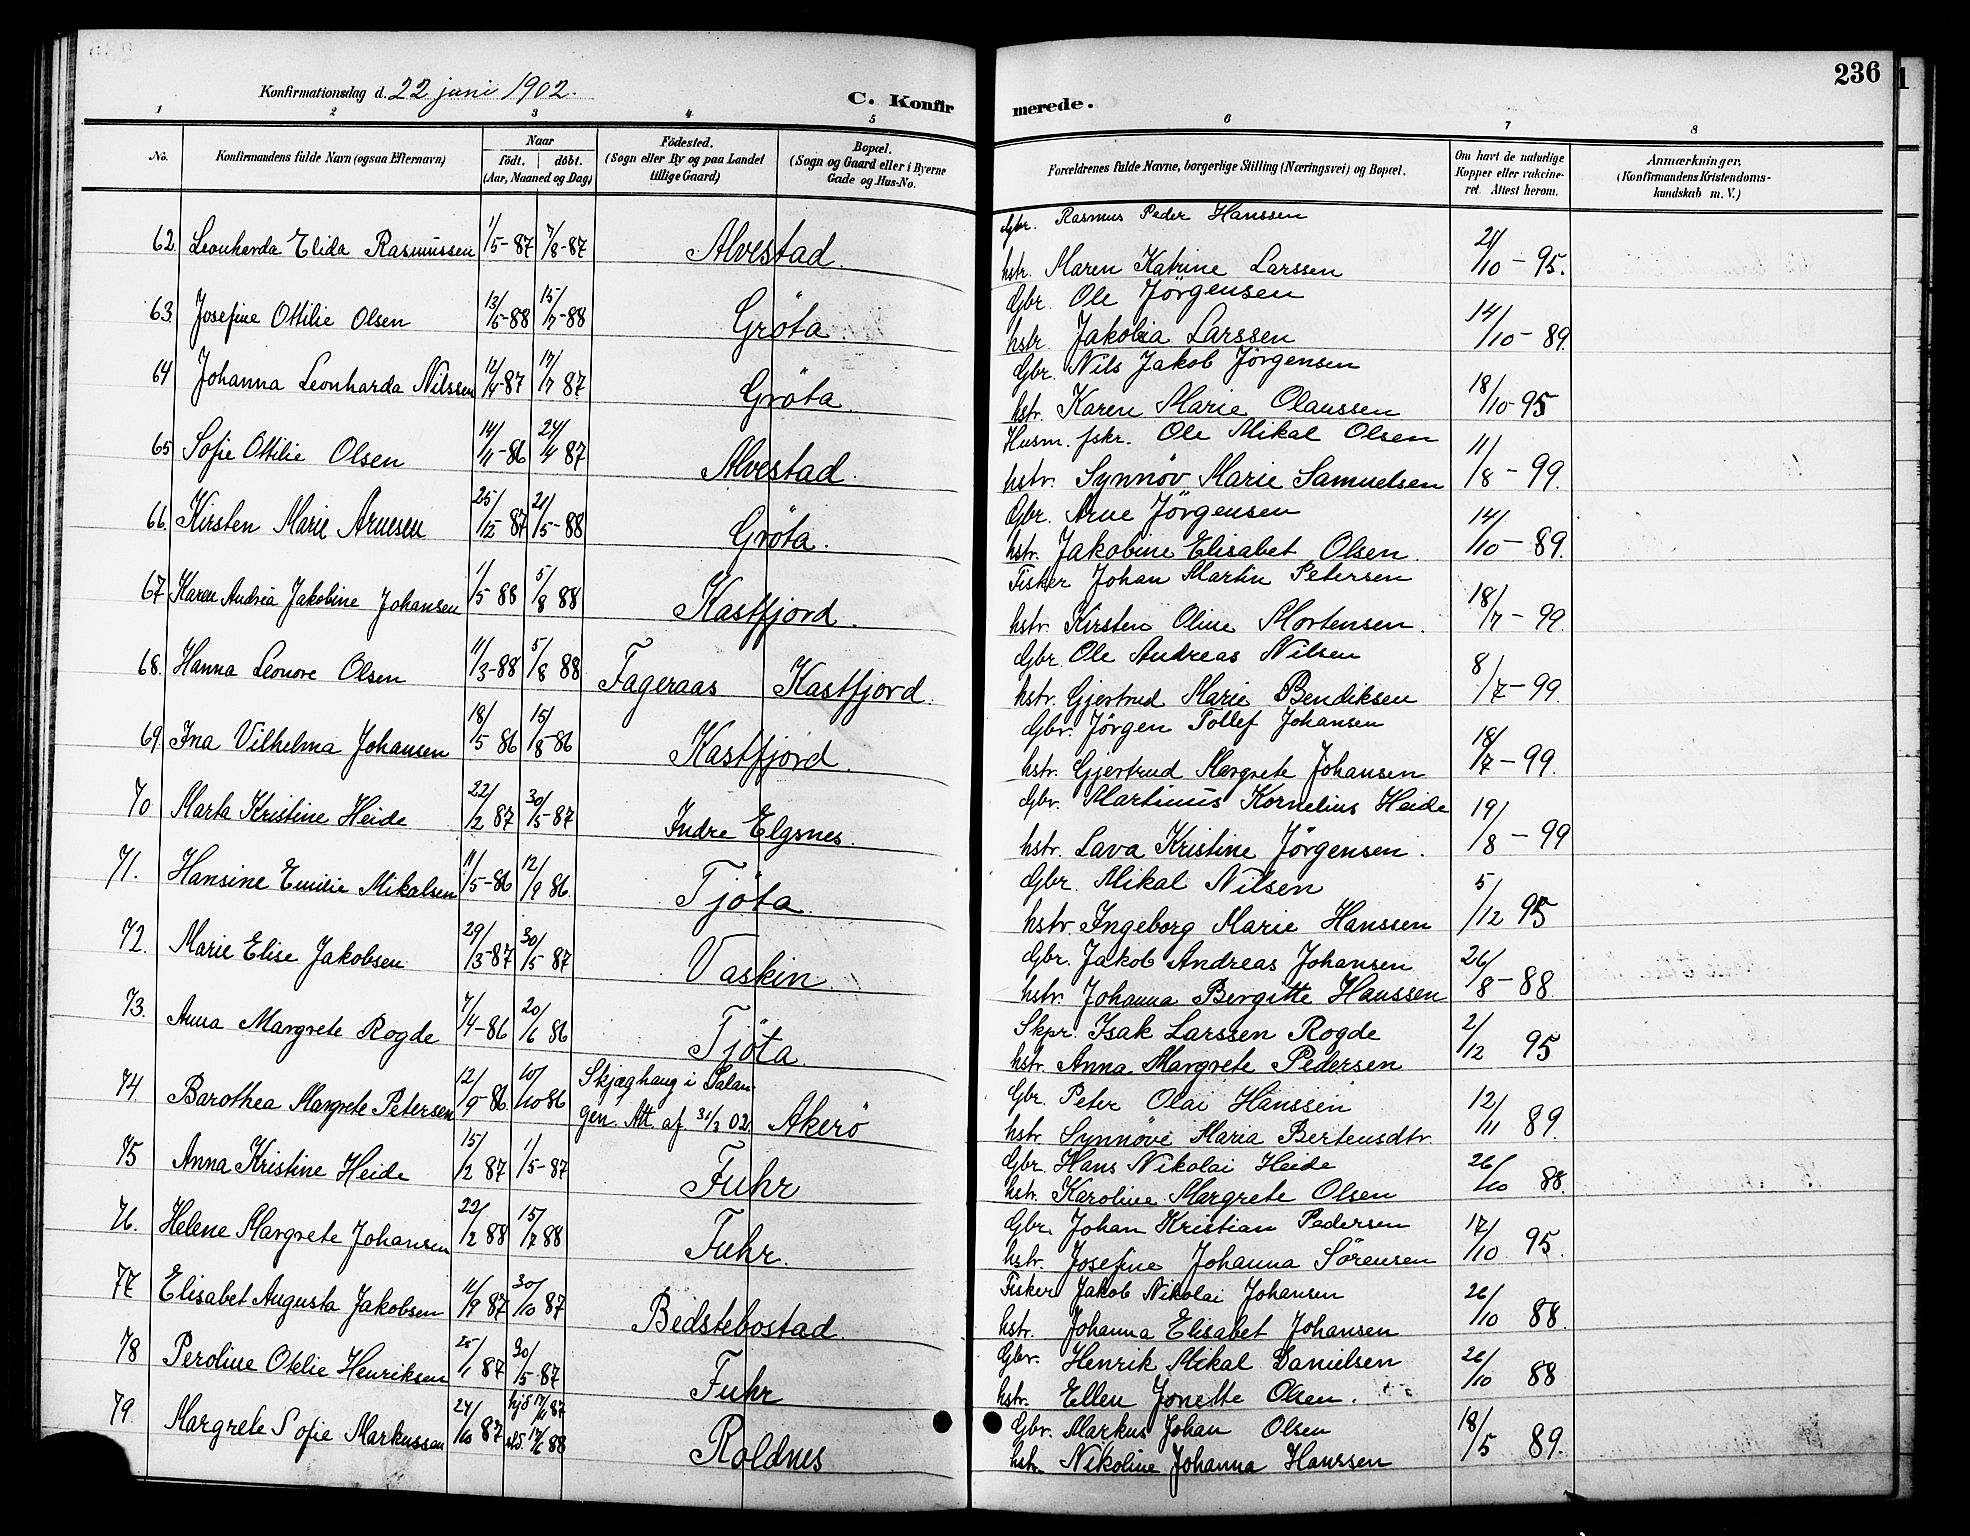 236
Konfirmationsdag d. 22 juni 1902.
C. Konfir merede.
1 2 3 4 5 6 7 8
No. Konfirmandens fulde Navn (ogsaa Efternavn) Naar födt. döbt. (Aar, Maaned og Dag) Födested. (Sogn eller By og paa Landet tillige Gaard) Bopæl. (Sogn og Gaard eller i Byerne Gade og Hus-No. Forældrenes fulde Navne, borgerlige Stilling (Næringsvei) og Bopæl. Om havt de naturlige Kopper eller vakcineret. Attest herom. Anmærkninger, (Konfirmandens Kristendomskundskab m. V.)
Gbr. Rasmus Peder Hanssen
62 Leonharda Elida Rasmussen 1/5-87 7/8-87 Alvestad. hstr. Maren Katrine Larssen 21/10-95.
Gbr. Ole Jörgensen
63 Josefine Ottilie Olsen 13/5-88 15/7-88 Gröta. hstr. Jakobia Larssen 14/10-89.
Gbr. Nils Jakob Jörgensen
64 Johanna Leonharda Nilssen 12/4-87 17/7 87 Gröta. hstr. Karen Marie Olaussen 18/10-95
Husm. fskr. Ole Mikal Olsen
65 Sofie Ottilie Olsen 14/11-86 24/4 87 Alvestad. hstr. Synnöv Marie Samuelsen 11/8-99.
Gbr. Arne Jörgensen
66. Kirsten Marie Arnesen 25/12 87 21/5-88 Gröta. hstr. Jakobine Elisabet Olsen. 14/10-89.
Fisker Johan Martin Petersen
67 Karen Andrea Jakobine Johansen 1/5 88 5/8 88 Kastfjord. hstr. Kirsten Oline Mortensen. 18/7-99.
Gbr. Ole Andreas Nilsen
68. Hanna Leonore Olsen 11/3-88 5/8 88 Fageraas Kastfjord. hstr. Gjertrud Marie Bendiksen 8/7-99.
Gbr. Jörgen Tollef Johansen
69. Ina Vilhelma Johansen 18/5 86 15/8-86 Kastfjord. hstr. Gjertrud Margrete Johansen 18/7-99.
Gbr. Martinus Kornelius Heide
70 Marta Kristine Heide 22/2 87 30/5-87 Indre Elgsnes. hstr. Lava Kristine Jörgensen. 19/8-99
Gbr. Mikal Nilsen
71. Hansine Emilie Mikalsen 11/5-86 12/9 86 Tjöta. hstr Ingeborg Marie Hanssen 5/12 95
Gbr. Jakob Andreas Johansen
72. Marie Elise Jakobsen 29/3-87 30/5 87 Vaskin. hstr. Johanna Bergitte Hanssen 26/8-88.
Skpr. Isak Larssen Rogde
73. Anna Margrete Rogde 7/4-86 20/6 86 Tjöta. hstr. Anna Margrete Pedersen 2/12 95
Gbr. Peter Olai Hanssen
74 Barothea Margrete Petersen 12/9 86 10/10 86 Skjæghaug i Salangen. Att. af 31/3 02 Akerö hstr. Synnöve Maria Bertensdtr. 12/11 89.
Gbr. Hans Nikolai Heide
75 Anna Kristine Heide 15/2 87 1/5-87 Fuhr hstr. Karoline Margrete Olsen 26/10 88.
Gbr. Johan Kristian Pedersen
76. Helene Margrete Johansen 22/2 88 15/7 88 Fuhr. hstr. Josefine Johanna Sörensen 17/10 95.
Fisker Jakob Nikolai Johansen
77 Elisabet Augusta Jakobsen 11/9 87 30/10 87 Bedstebostad. hstr. Johanna Elisabet Johansen 26/10 88.
Gbr. Henrik Mikal Danielsen
78 Peroline Otelie Henriksen 25/1 87 30/5-87 Fuhr hstr. Ellen Jonette Olsen. 26/10 88
Gbr. Markus Johan Olsen
79. Margrete Sofie Markussen 24/10 87 hjd 17/11 87 Roldnes hstr. Nikoline Johanna Hanssen 18/5 89.
std. 17/6 88